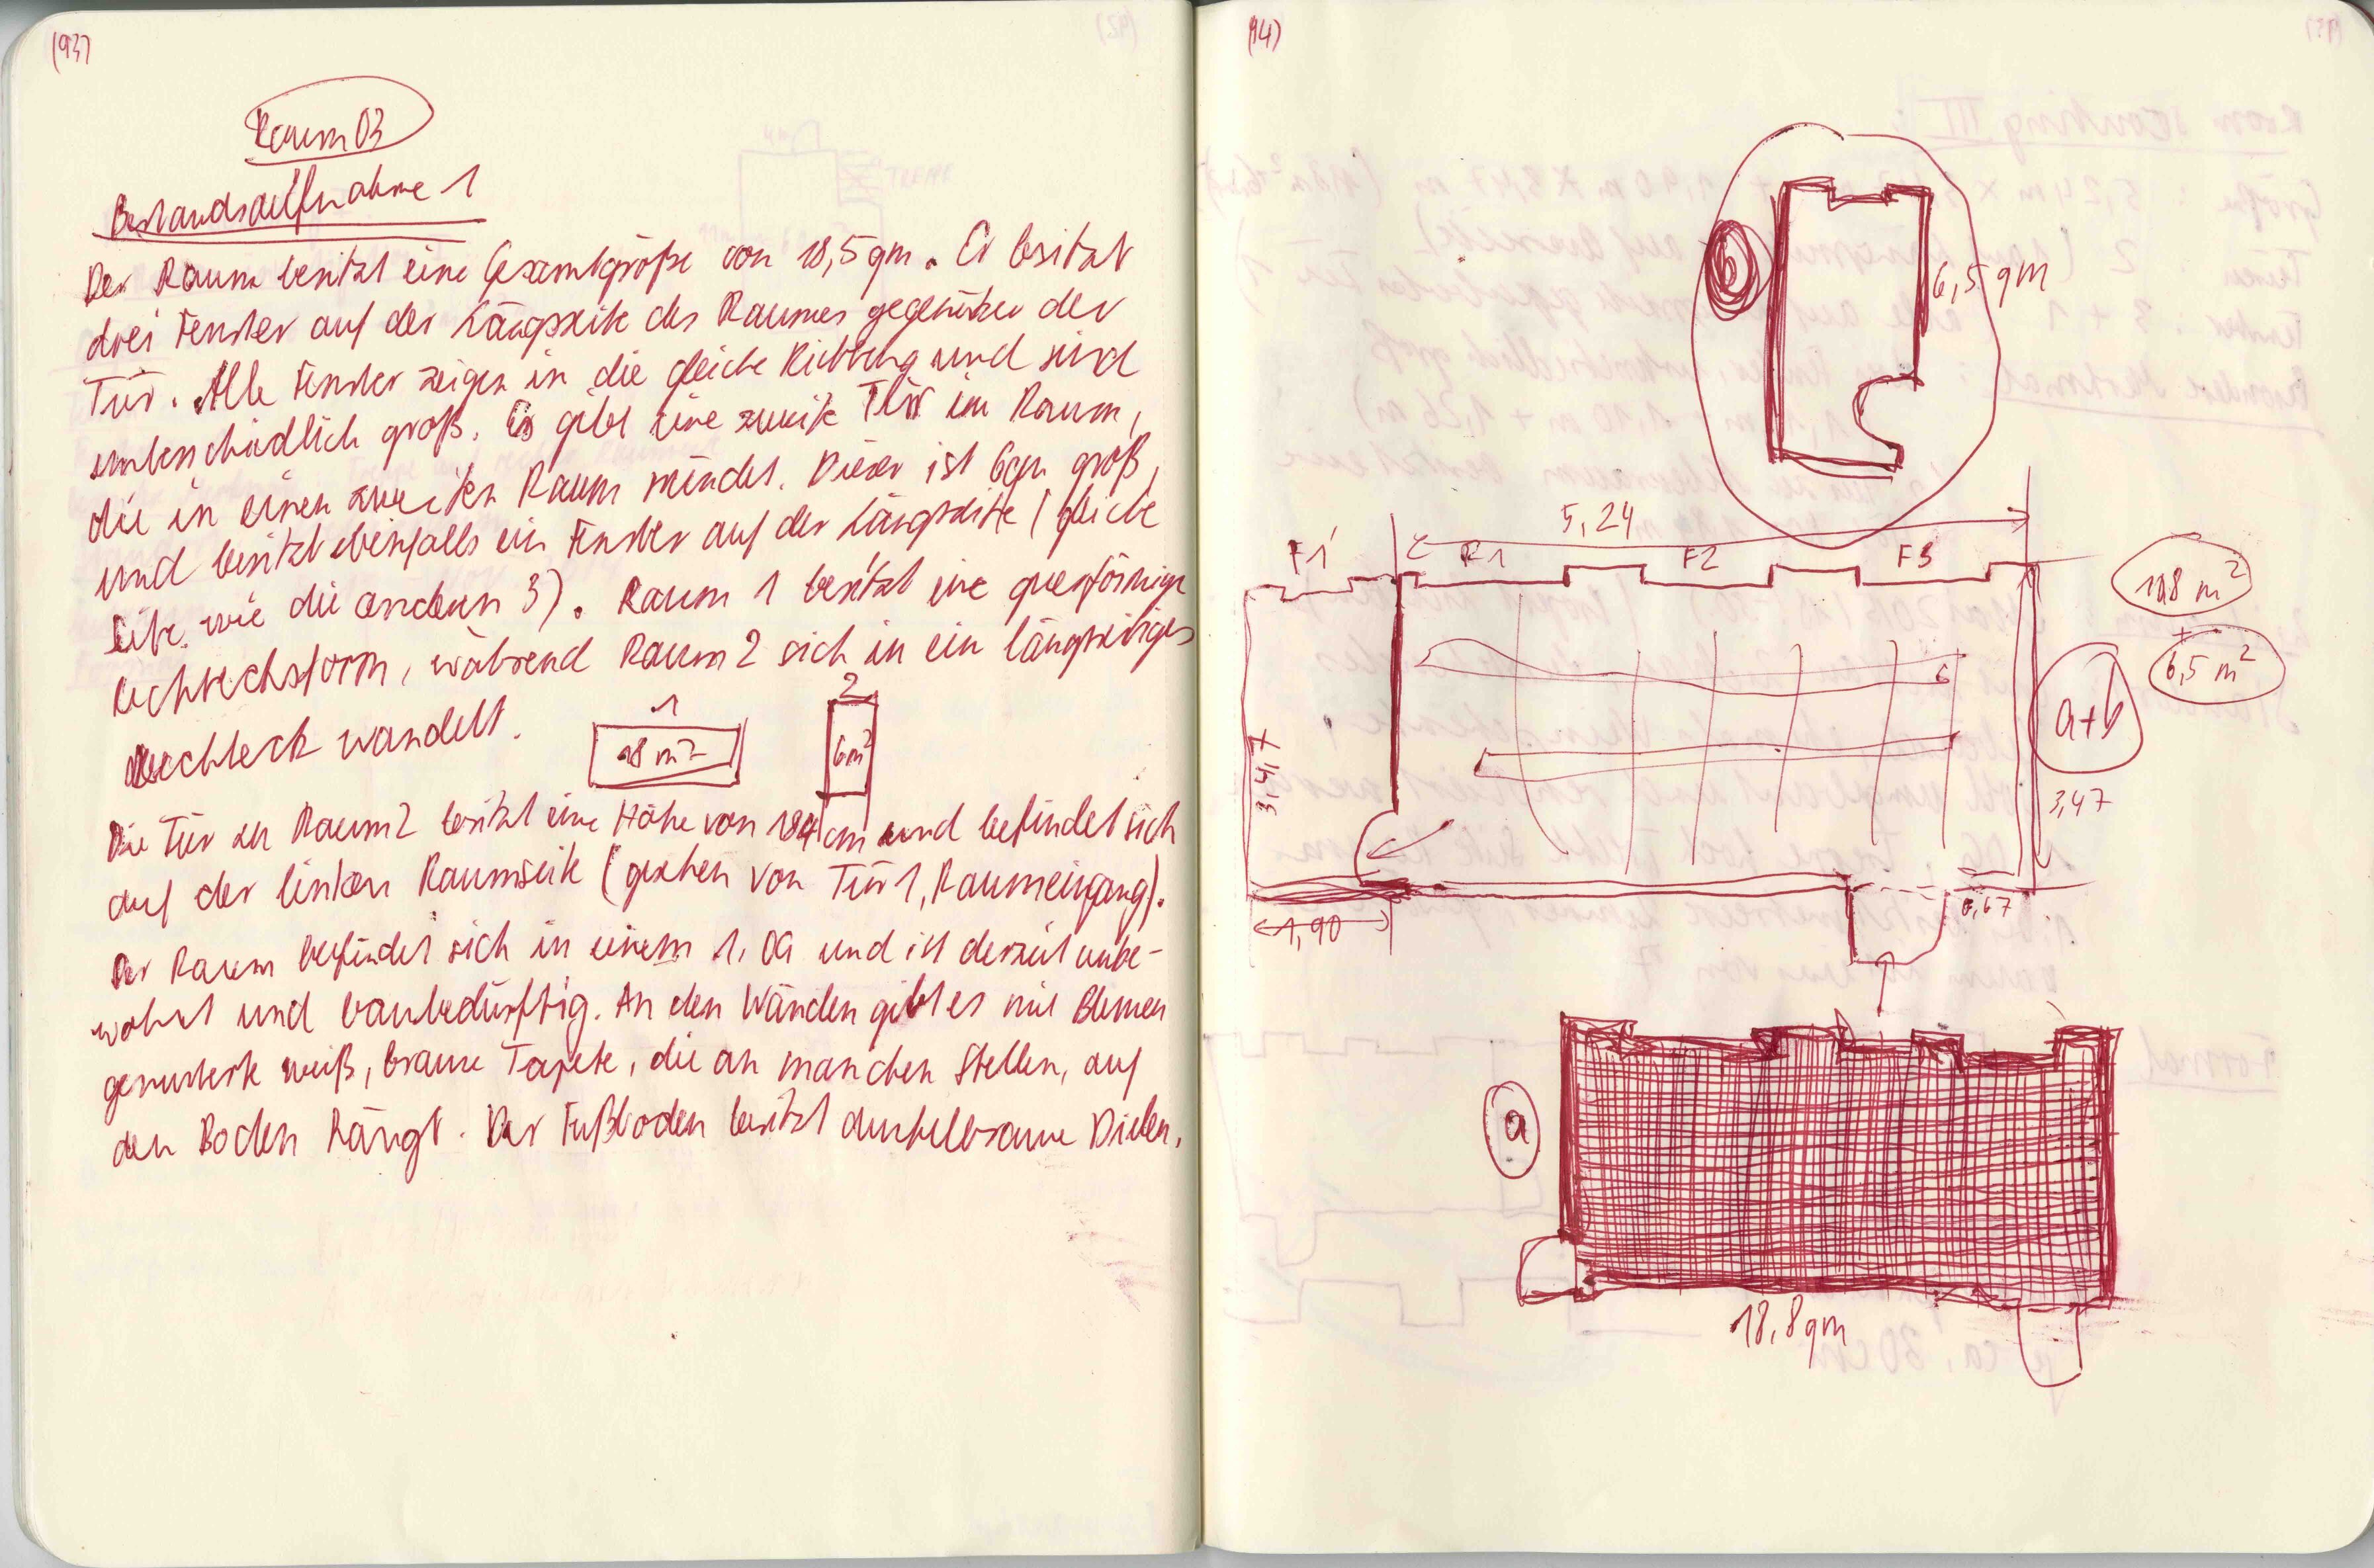 (93)
Raum 03
Bestandsaufnahme 1
Der Raum besitzt eine Gesamtgröße von 18,5 qm. Er besitzt
drei Fenster auf der Längsseite des Raumes gegenüber der
Tür. Alle Fenster zeigen in die gleiche Richtung und sind
unterschiedlich groß. Es gibt eine zweite Tür im Raum,
die in einen zweiten Raum mündet. Dieser ist 6qm groß,
und besitzt ebenfalls ein Fenster auf der Längsseite (gleiche
Seite wie die andern 3). Raum 1 besitzt eine querförmige
rechtecksform, während Raum 2 sich in ein längsseitiges
Rechteck wandelt.
1
18 m²
2
6m²
Die Tür zu Raum2 besitzt eine Höhe von 184 cm und befindet sich
auf der linken Raumseite (gesehen von Tür 1, Raumeingang).
Der Raum befindet sich in einem 1. OG und ist derzeit unbe-
wohnt und baubedürftig. An den Wänden gibt es mit Blumen
gemusterte weiß, braune Tapete, die an manchen Stellen, auf
den Boden hängt. Der Fußboden besitzt dunkelbraune Dielen.
(94)
b
6,5 qm
5,24
F1'
F1
F2
F3
18,8 m²
+
6,5 m²
a+b
3,47
3,47
1,90
0,67
a
18,8qm